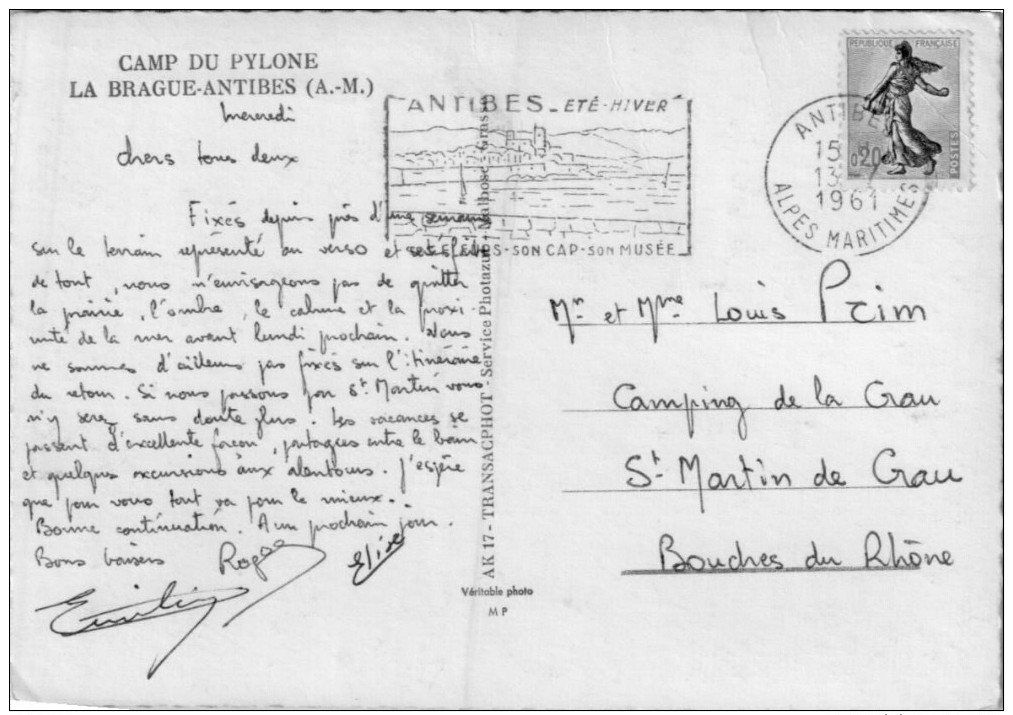 CAMP DU PYLONE
LA BRAGUE-ANTIBES (A.-M.)
Mercredi
chers tous deux
Fixés depuis près d'une semaine
sur le terrain représenté au verso et satisfaits
de tout, nous n'envisageons pas de quitter
la prairie, l'ombre, le calme et la proxi-
mité de la mer avant lundi prochain. Nous
ne sommes d'ailleurs pas fixés sur l'itinéraire
du retour. Si nous passons par St Martin vous
n'y serez sans doute plus. Les vacances se
passent d'excellente façon, partagées entre le bain
et quelques excursions aux alentours. J'espère
que pour vous tout va pour le mieux.
Bonne continuation. A un prochain jour.
Bons baisers Roger Elise
Emilie
ANTIBES - ETÉ - HIVER
FLEURS - SON CAP - SON MUSÉE
AK 17 - TRANSACPHOT - Service Photazur - Grasse
Véritable photo
M P
REPUBLIQUE FRANÇAISE
0,20
POSTES
ANTIBES
15
13
1961
ALPES MARITIMES
Mr et Mme Louis Prim
Camping de la Crau
St Martin de Crau
Bouches du Rhône